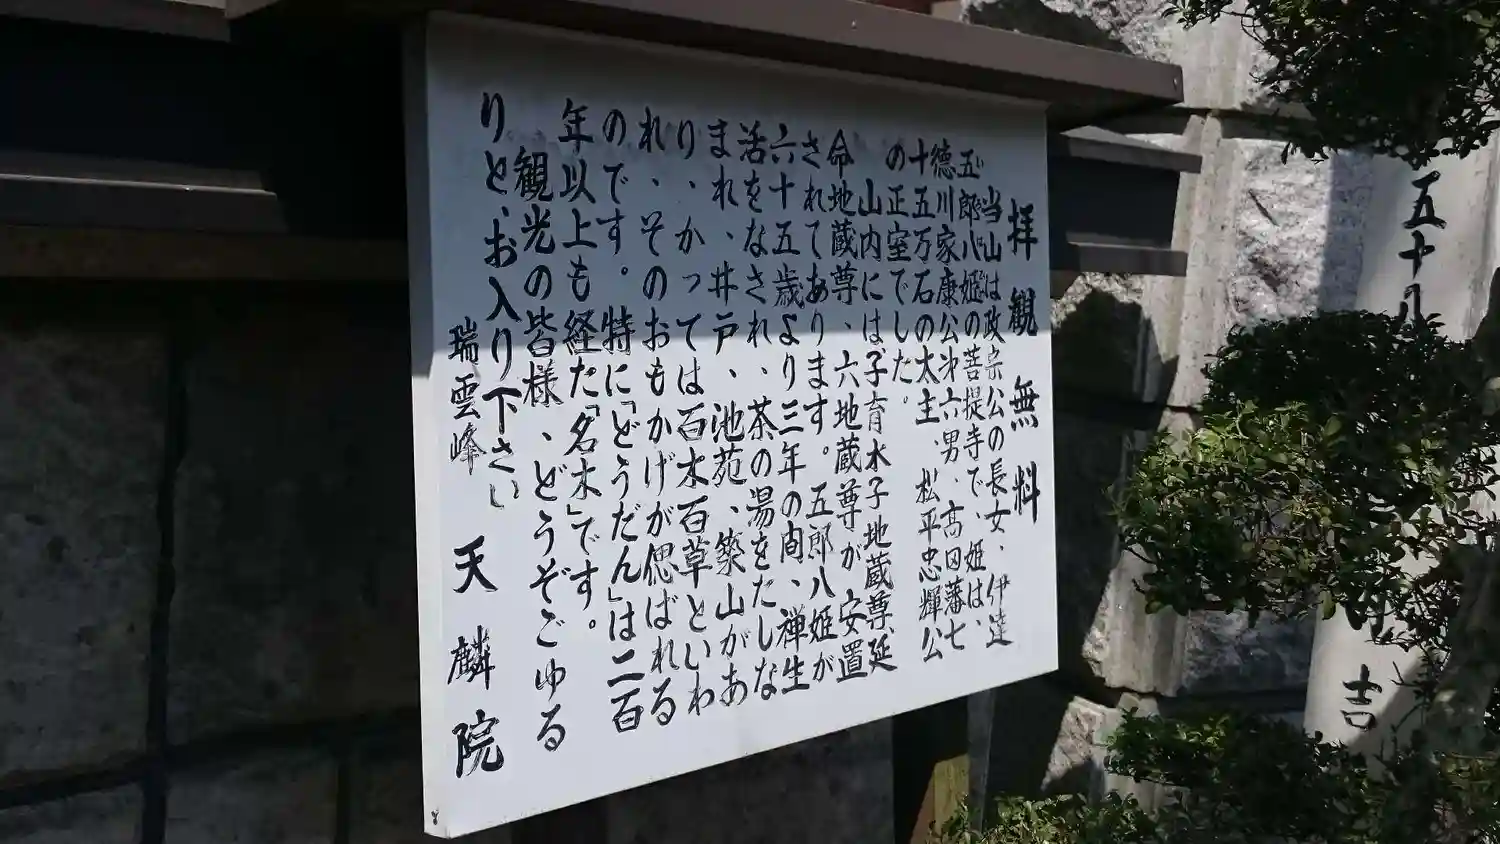 拝観無料
当山は政宗公の長女、伊達
五郎八姫の菩提寺で、姫は、
徳川家康公才六男、高田藩七
十五万石の太主、松平忠輝公
の正室でした。
山内には子育水子地蔵尊延
命地蔵尊、六地蔵尊が安置
されてあります。五郎八姫が
六十五歳より三年の間、禅生
活をなされ、茶の湯をたしな
まれ、井戸、池苑、築山があ
り、かっては百木百草といわ
れ、そのおもかげが偲ばれる
のです。特に「どうだん」は二百
年以上も経た「名木」です。
観光の皆様、どうぞごゆる
りと、お入り下さい
瑞雲峰 天麟院
五十八
吉